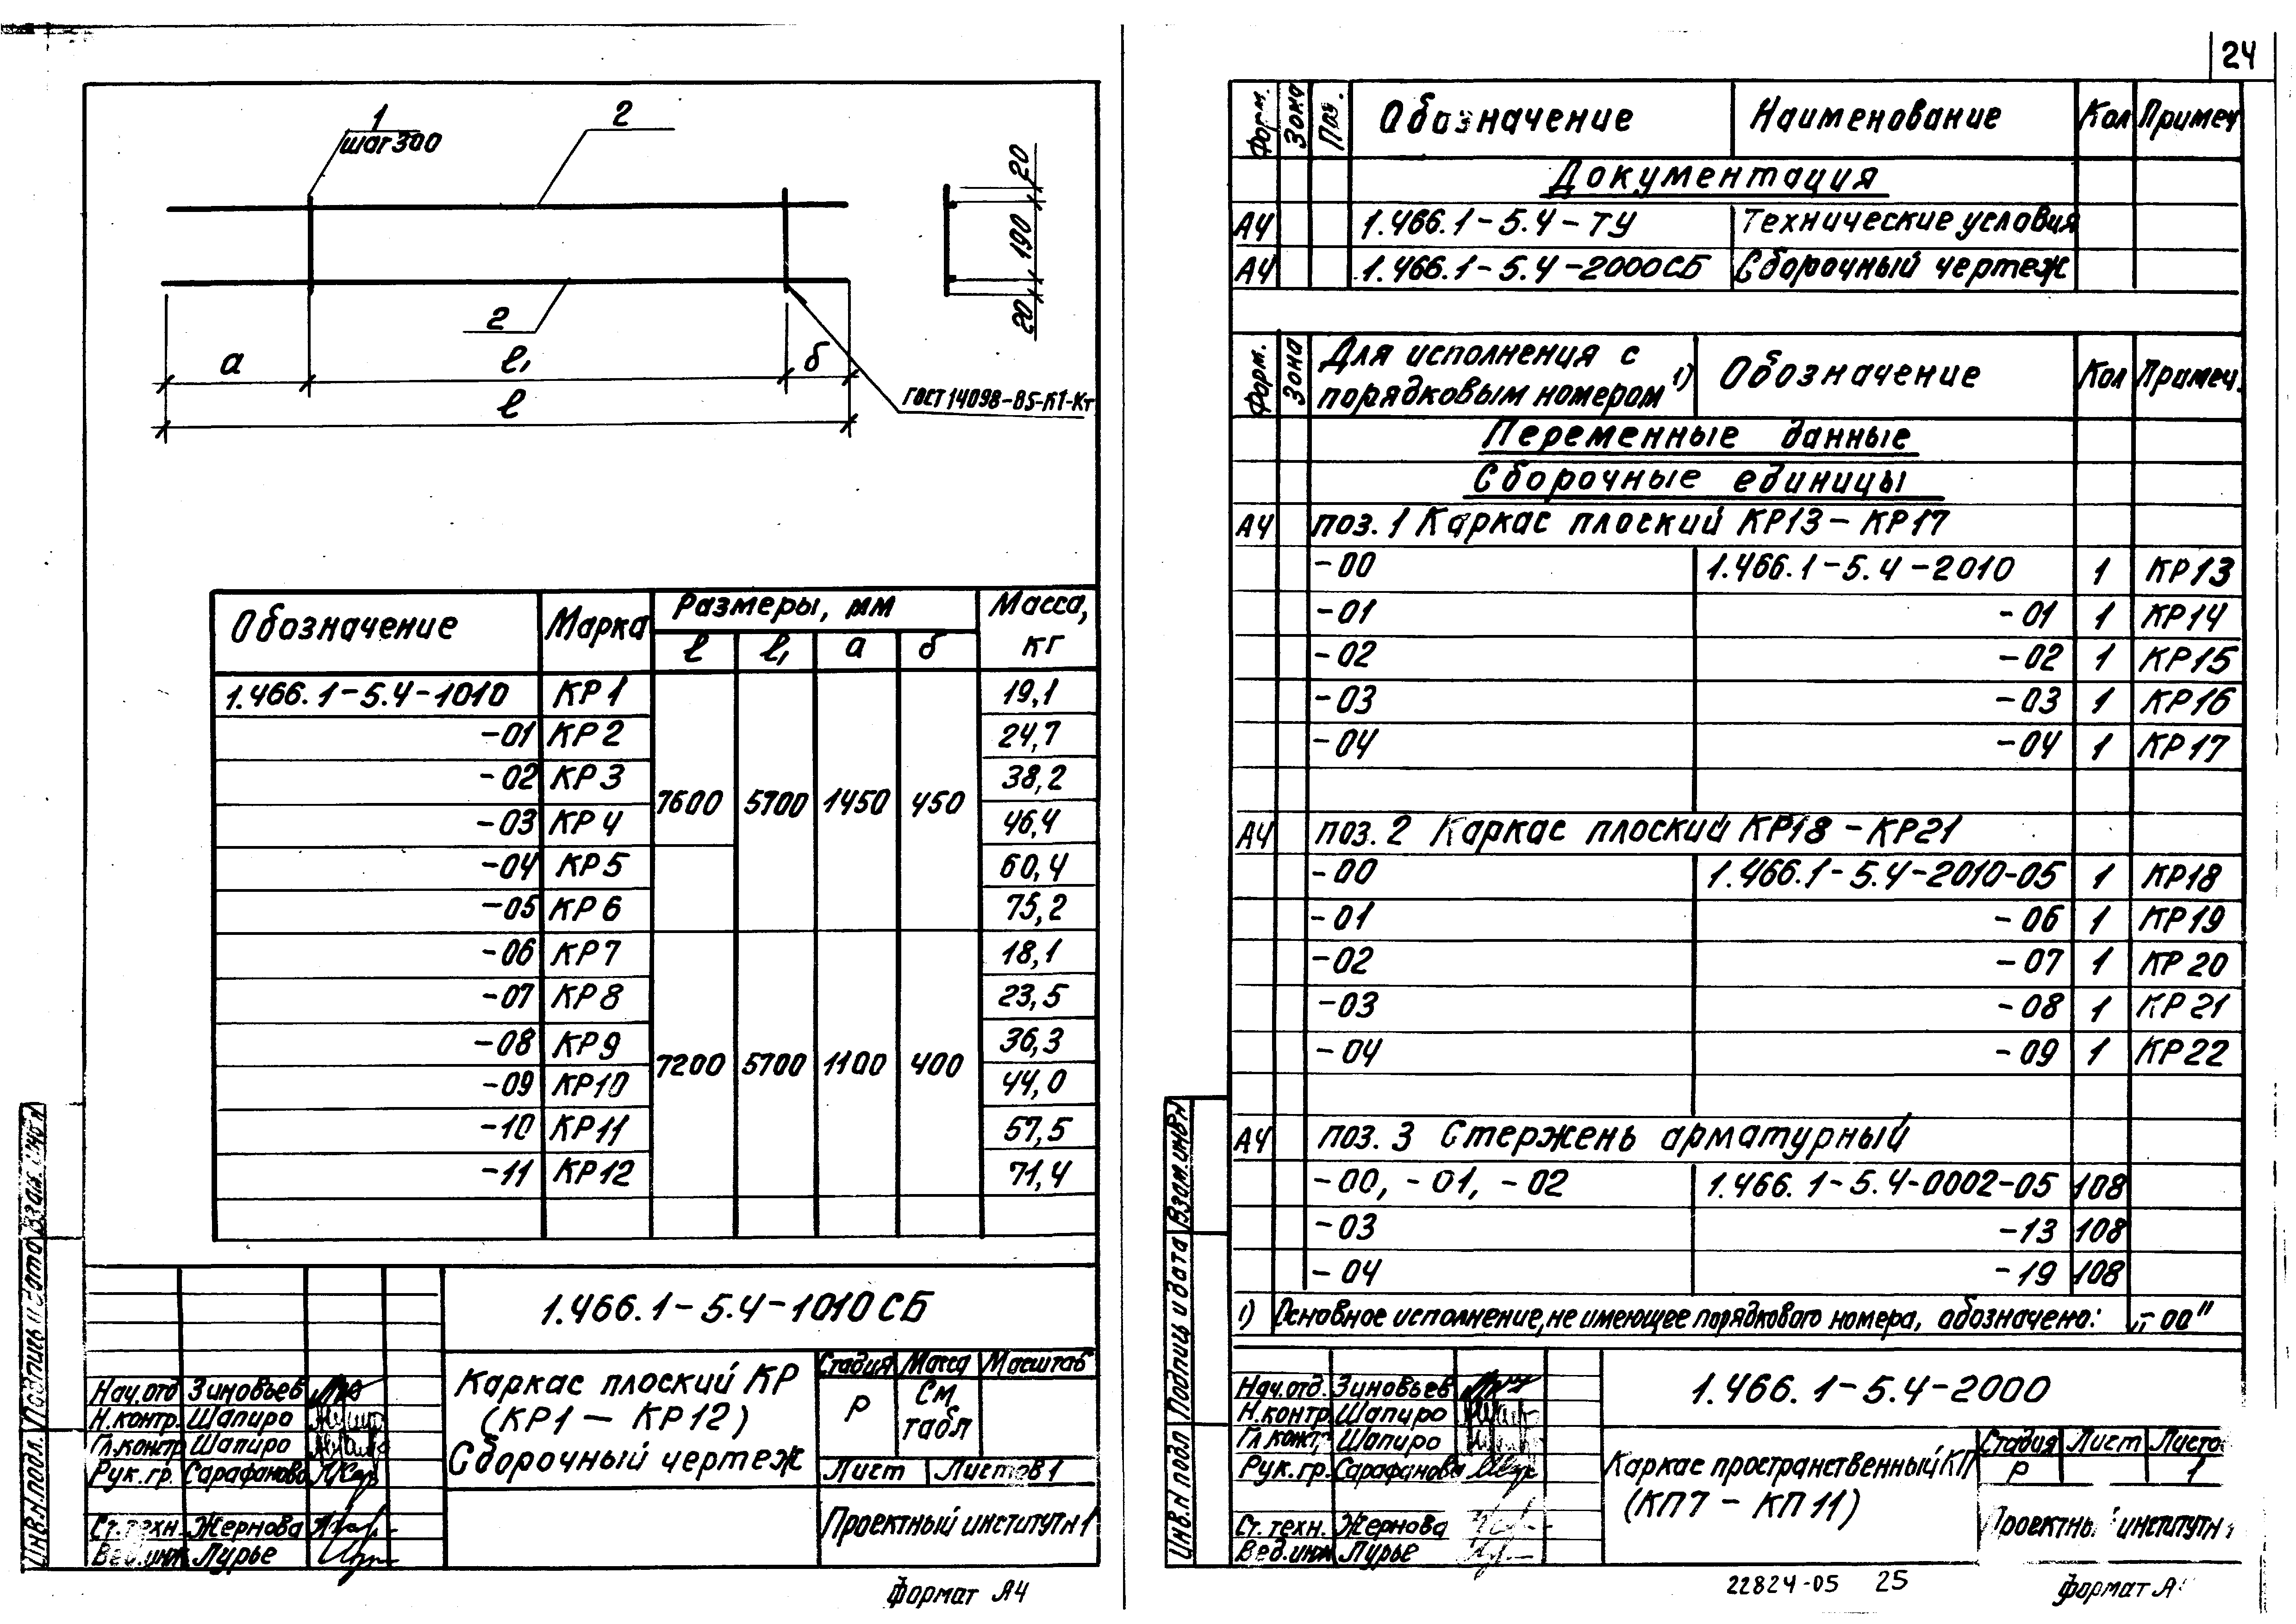 24
1
шаг 300
2
2
20
190
20
а
ℓ₁
б
ℓ
ГОСТ 14098-85-К1-Кт
Обозначение Марка Размеры, мм Масса, кг
ℓ ℓ₁ а б
1.466.1-5.4-1010 КР1 19,1
-01 КР2 24,7
-02 КР3 38,2
7600 5700 1450 450
-03 КР4 46,4
-04 КР5 60,4
-05 КР6 75,2
-06 КР7 18,1
-07 КР8 23,5
-08 КР9 36,3
7200 5700 1100 400
-09 КР10 44,0
-10 КР11 57,5
-11 КР12 71,4
1.466.1-5.4-1010СБ
Каркас плоский КР
(КР1 - КР12)
Сборочный чертеж
Стадия Масса Масштаб
Р См. табл
Лист Листов 1
Проектный институт N1
Нач.отд Зиновьев
Н.контр. Шапиро
Гл.констр Шапиро
Рук.гр. Сарафанова
Ст.техн. Жернова
Вед.инж Лурье
Инв.N подл. Подпись и дата Взам.инв N
Формат А4
Форм. Зона Поз. Обозначение Наименование Кол Примеч
Документация
А4 1.466.1-5.4-ТУ Технические условия
А4 1.466.1-5.4-2000СБ Сборочный чертеж
Форм. Зона Для исполнения с порядковым номером 1) Обозначение Кол Примеч.
Переменные данные
Сборочные единицы
А4 поз. 1 Каркас плоский КР13-КР17
-00 1.466.1-5.4-2010 1 КР13
-01 -01 1 КР14
-02 -02 1 КР15
-03 -03 1 КР16
-04 -04 1 КР17
А4 поз. 2 Каркас плоский КР18-КР21
-00 1.466.1-5.4-2010-05 1 КР18
-01 -06 1 КР19
-02 -07 1 КР20
-03 -08 1 КР21
-04 -09 1 КР22
А4 поз. 3 Стержень арматурный
-00, -01, -02 1.466.1-5.4-0002-05 108
-03 -13 108
-04 -19 108
1) Основное исполнение, не имеющее порядкового номера, обозначено: „-00"
1.466.1-5.4-2000
Каркас пространственный КП
(КП7 - КП11)
Стадия Лист
Р 1
Проектный институт
Нач.отд. Зиновьев
Н.контр Шапиро
Гл.констр. Шапиро
Рук.гр. Сарафанова
Ст.техн. Жернова
Вед.инж Лурье
Инв.N подл Подпись и дата Взам.инв N
22824-05 25
Формат А